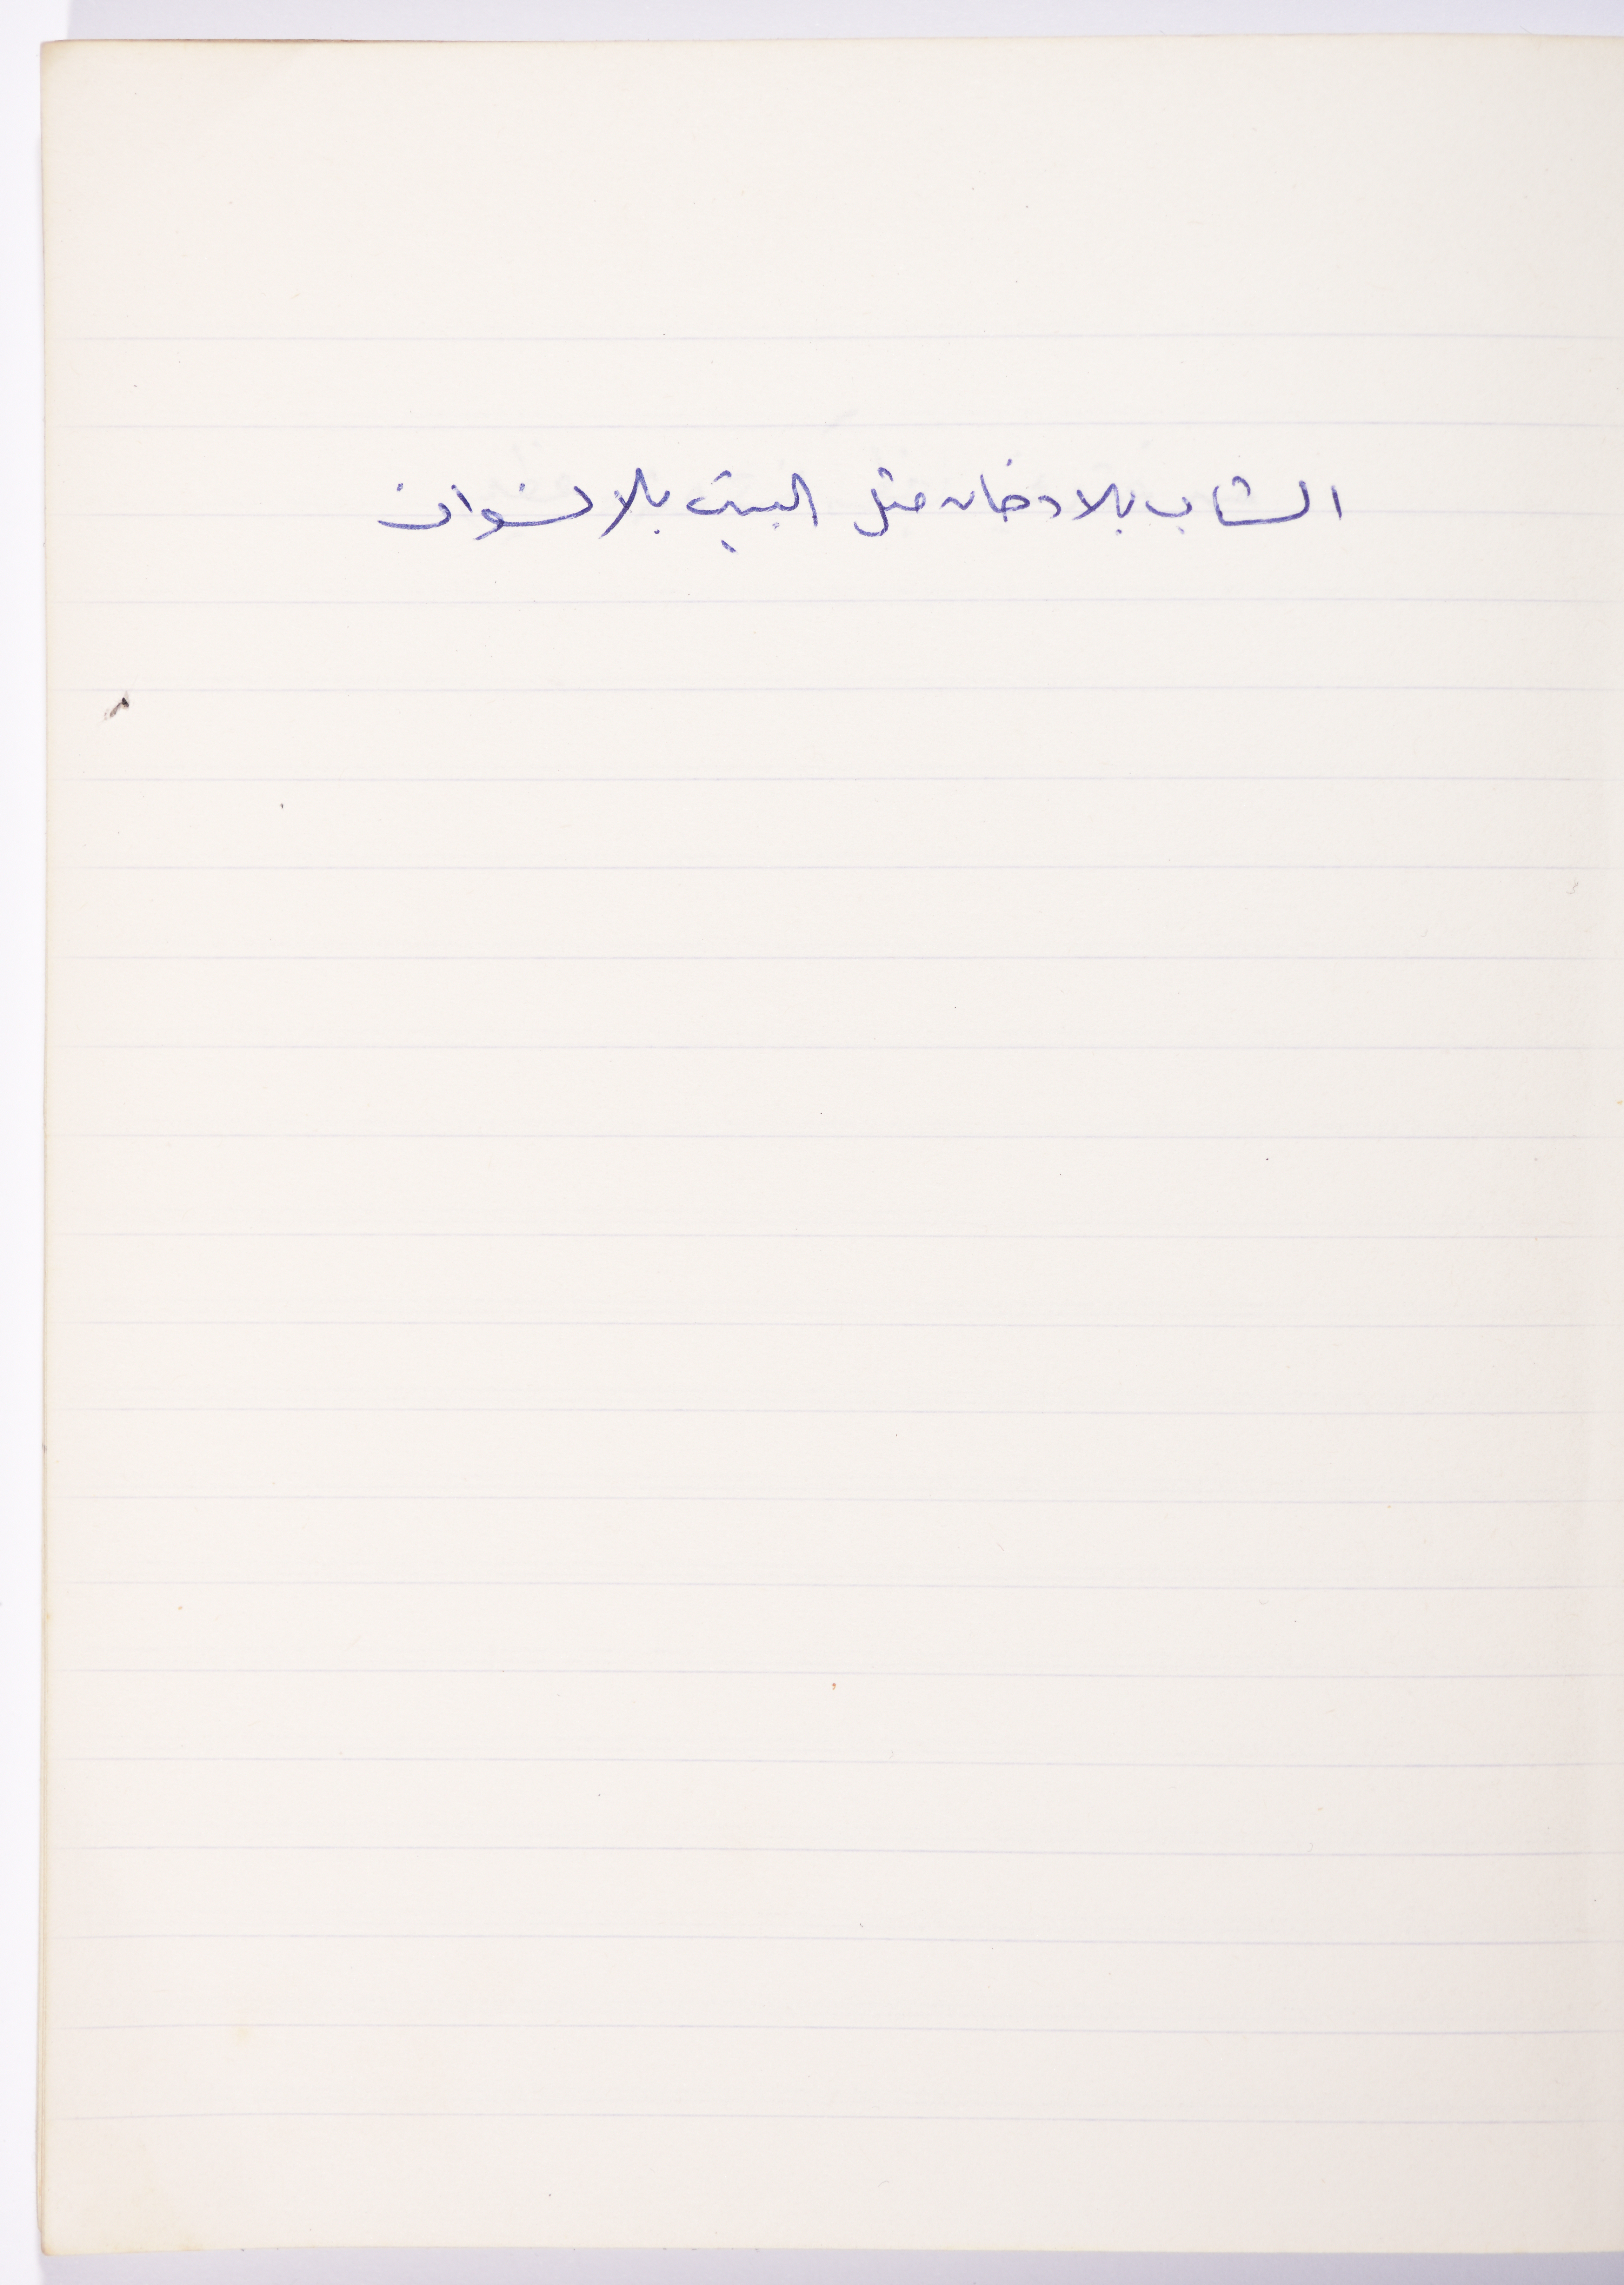 الشاب بلا دخان مثل البيت بلا نسوان